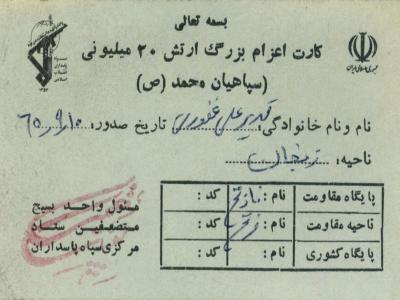 بسمه تعالی
کارت اعزام بزرگ ارتش ۲۰ میلیونی
(سپاهیان محمد (ص
جمهوری اسلامی ایران
نام و نام خانوادگی: قدیرعلی غفوری تاریخ صدور: ۶۵٫۹٫۱۰
ناحیه: زنجان
پایگاه مقاومت نام: کد:
ناحیه مقاومت نام: کد:
پایگاه کشوری نام: کد:
مسئول واحد بسیج
مستضعفین ستاد
مرکزی سپاه پاسداران